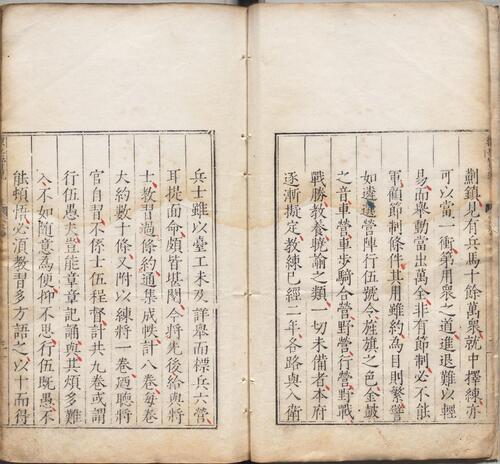 薊鎮見有兵馬十餘萬衆就中擇練亦
可以當一衝第用衆之道進退難以輕
易而舉動當出萬全非有節制必不能
軍顧節制條件其用雖約為目則繁譬
如遴選營陣行伍號令旌旗之色金鼓
之音車營車步騎合營野營行營野戰
戰勝教養曉諭之類一切未備者本府
逐漸擬定教練已經二年各路與入衛
兵士雖以臺工未及詳舉而標兵六營
耳提面命頗皆堪閱今將先後給與將
士教習過條約通集成帙計八卷每卷
大約數十條又附以練將一卷廼聽將
官自習不係士伍程督計共九卷或謂
行伍愚夫豈能章章記誦與其煩多難
入不如隨意為便抑不思行伍既愚不
能頓悟必須教習多方語之以十而得